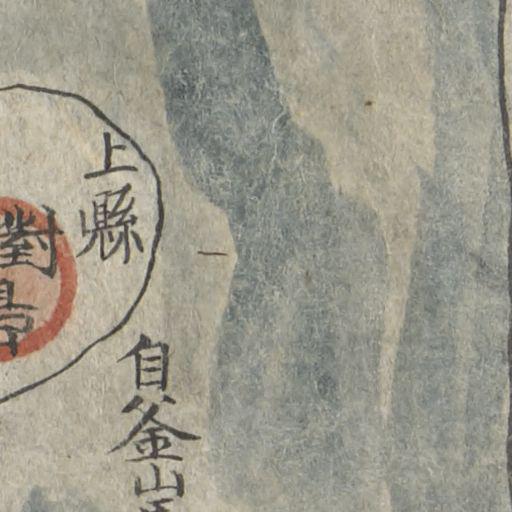 上縣
對馬
自釜山